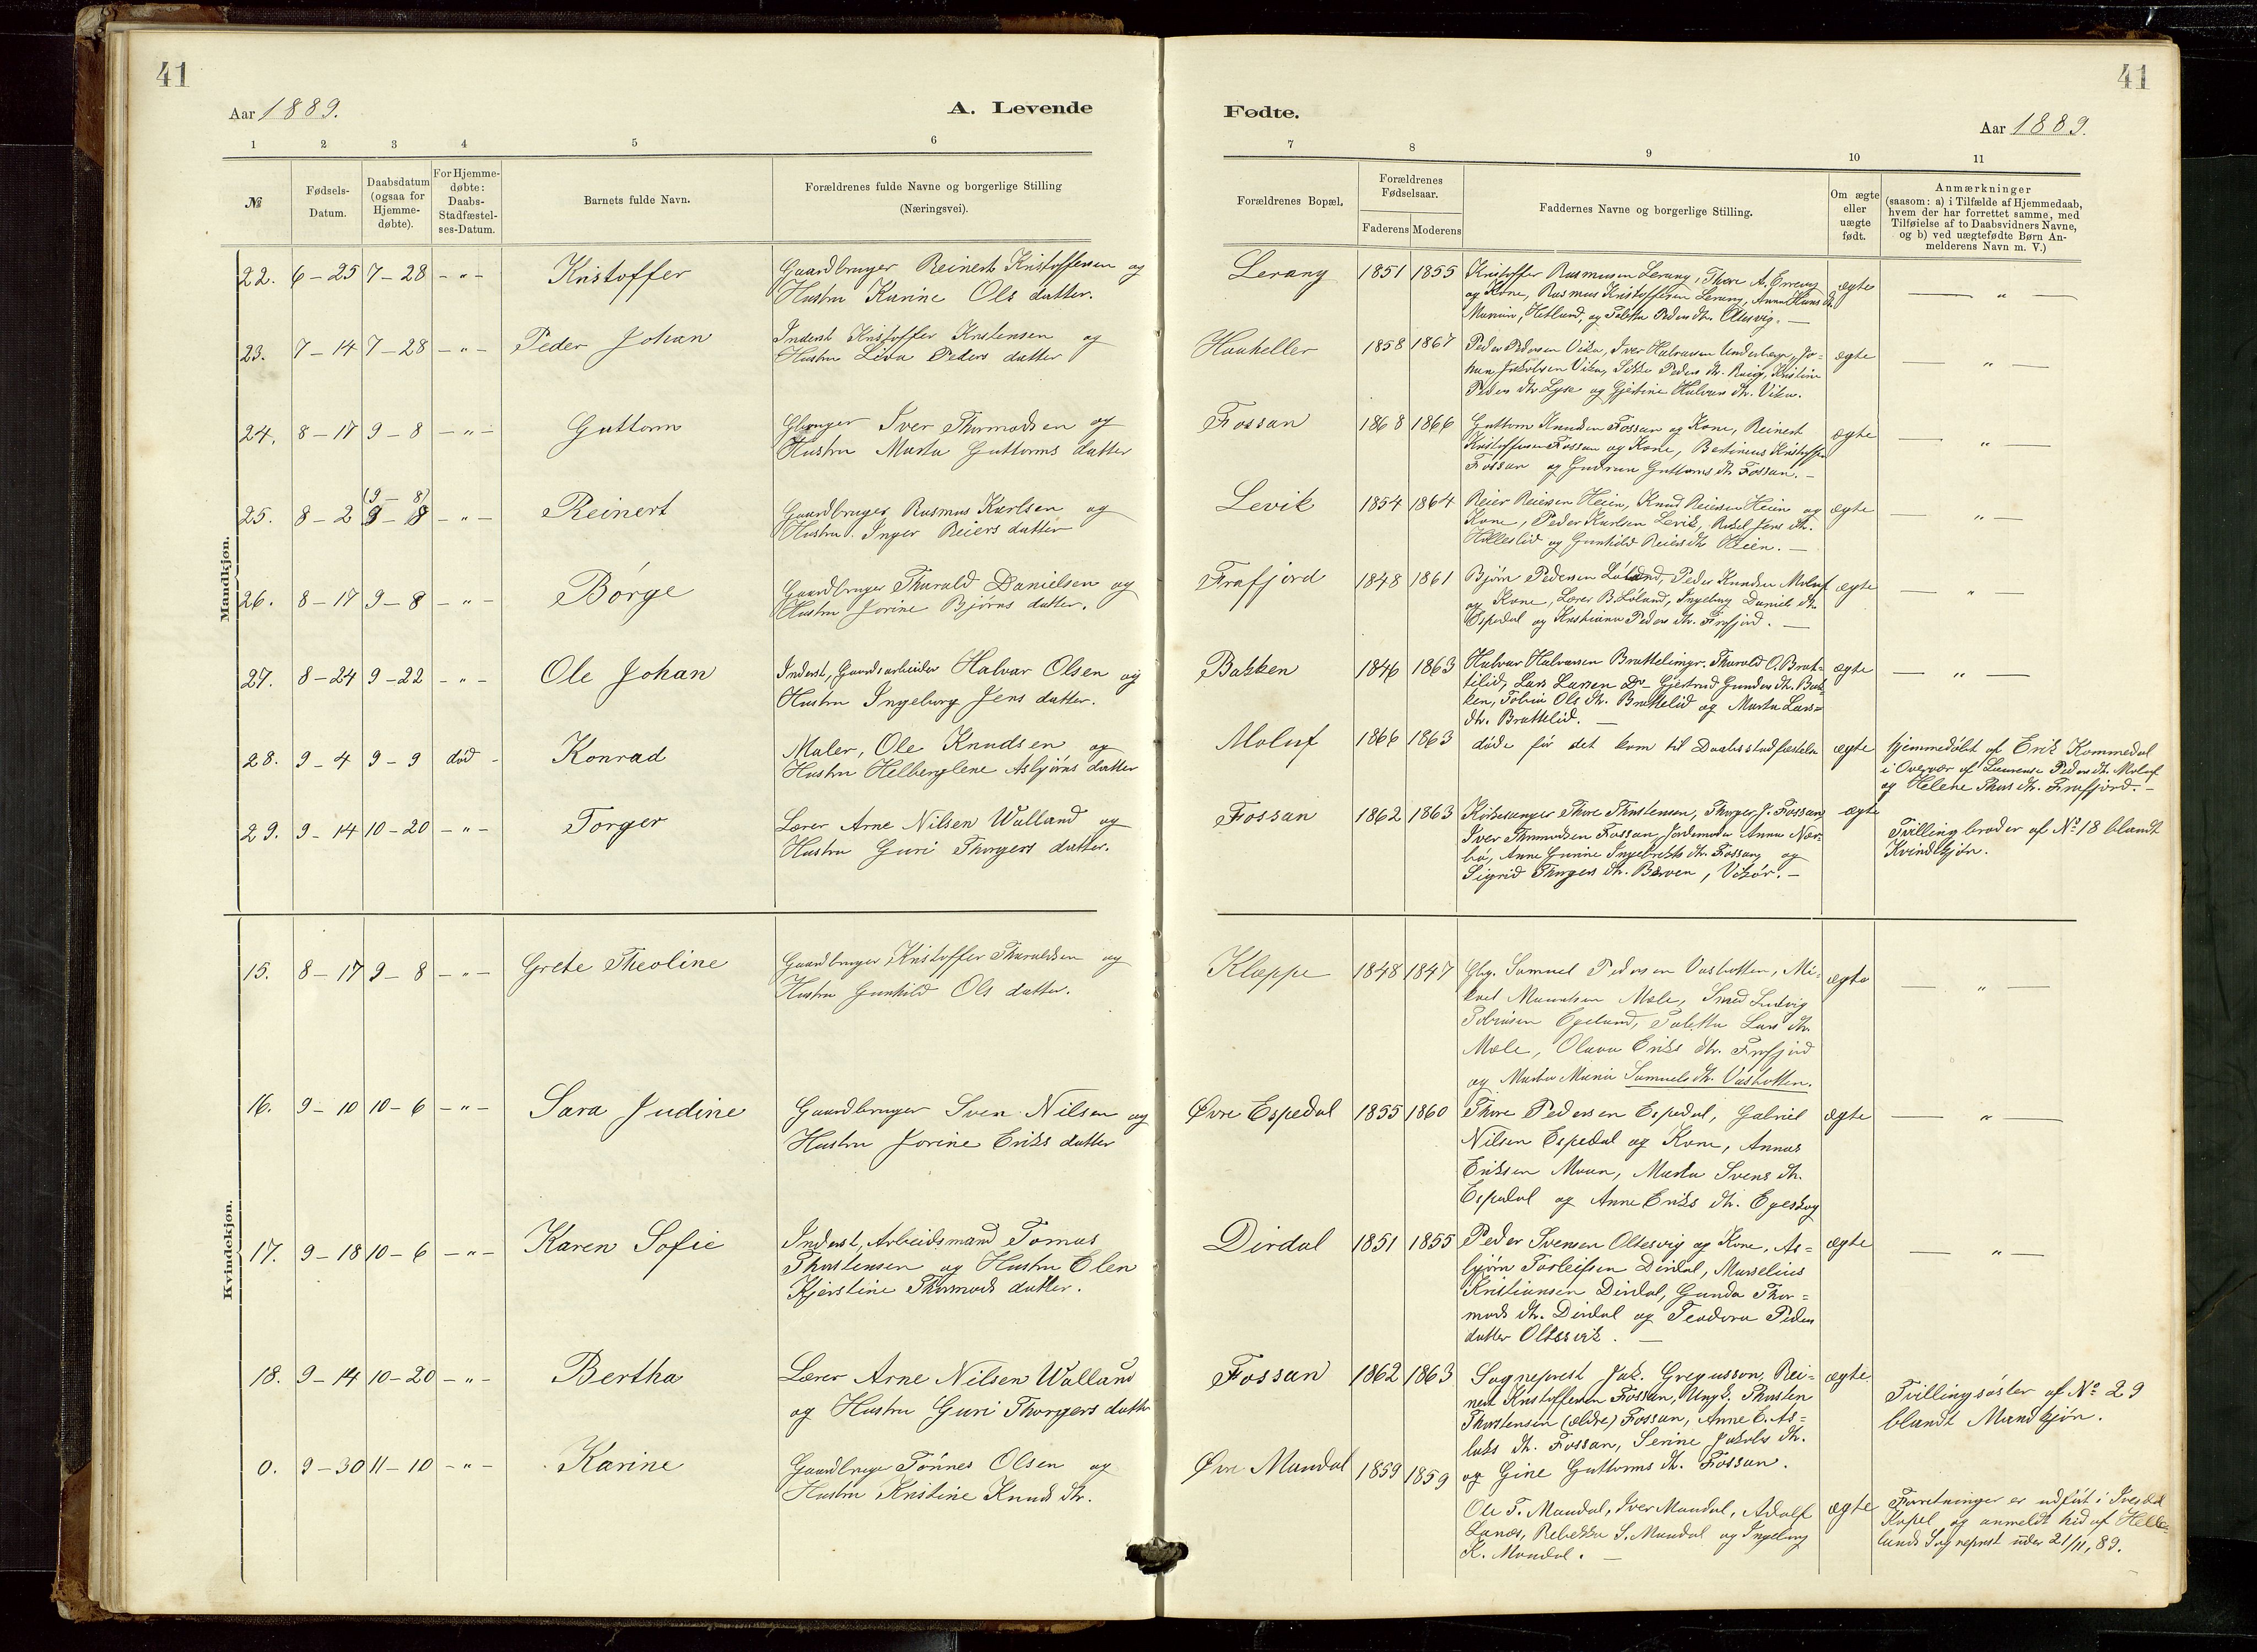 41
41
Aar 1889.
A. Levende
Fødte.
Aar 1889.
1 2 3 4 5 6
7 8 9 10 11
№
Fødsels-Datum.
Daabsdatum (ogsaa for Hjemme-døbte).
For Hjemme-døbte: Daabs-Stadfæstel-ses-Datum.
Barnets fulde Navn.
Forældrenes fulde Navne og borgerlige Stilling
(Næringsvei).
Forældrenes Bopæl.
Forældrenes Fødselsaar.
Faderens Moderens
Faddernes Navne og borgerlige Stilling.
Om ægte eller uægte født.
Anmærkninger
(saasom: a) i Tilfælde af Hjemmedaab,
hvem der har forrettet samme, med
Tilføielse af to Daabsvidners Navne,
og b) ved uægtefødte Børn An-
melderens Navn m. V.)
Mandkjøn.
22. 6-25 7-28 -"- Kristoffer
Gaardbruger Reinert Kristoffersen og
Hustru Karine Ols datter.
Lerang 1851 1855
Kristoffer Rasmusen Lerang, Thore A.
og Kone, Rasmus Kristoffersen Lerang, Anna Hans dt.
Hetland, og Peders dtr. Oltesvig. —
ægte — " —
23. 7-14 7-28 -"- Peder Johan
Inderst Kristoffer Kristensen og
Hustru Lisa Peders datter
Hauheller 1858 1867
Peder Pedersen Vika, Iver Halvorsen Jo=
han Jakobsen Vika, Peders dtr. Kristine
Peders dtr Lyse og Gjertine Halvors dtr. Vika.
ægte — " —
24. 8-17 9-8 -"- Guttorm
Gbruger Iver Thormodsen og
Hustru Marta Guttorms datter
Fossan 1868 1866
Guttorm Knudsen Fossan og Kone, Reinert
Kristoffersen Fossan og Kone, Bertinius Kristoffer
Fossan og Gudrun Guttorms dtr Fossan. —
ægte — " —
25. 8-2 (9-8) 9-8 -"- Reinert
Gaardbruger, Rasmus Karlsen og
Hustru. Inger Reiers datter
Levik 1854 1864
Reier Reiersen Heien, Knud Reiersen Heien og
Kone, Peder Karlsen Levik, Jens dtr.
Helleslid og Gunhild Reiers dtr Heien. —
ægte — " —
26. 8-17 9-8 -"- Börge
Gaardbruger Tharald Danielsen og
Hustru Jorine Bjørns datter.
Frafjord 1848 1861
Bjørn Pedersen Løland, Peder Knudsen Moluf
og Kone, Lærer B. Løland, Ingeborg Daniels dtr
Espedal og Kristiane Peders dtr. Frafjord. —
ægte — " —
27. 8-24 9-22 -"- Ole Johan
Inderst, Gaardsarbeider Halvar Olsen og
Hustru Ingeborg Jens datter.
Bakken 1846 1863
Halvar Halvarsen Brattelimyr. Tharald O. Brat=
telid, Lars Larsen Do – Gjertrud Gunders dtr. Bak=
ken, Tobia Ols dtr. Brattelid og Marta Lars=
dtr. Brattelid. —
ægte — " —
28. 9-4 9-9 død - Konrad
Maler, Ole Knudsen og
Hustru Asbjørns datter
Moluf 1866 1863
døde før det kom til Daabsstadfæstelse
ægte
Hjemmedöbt af Erik Kommedal
i Overvær af Laurense Peders dtr. Moluf
og Helene Thors dtr. Frafjord. —
29. 9-14 10-20 -"- Torger
Lærer Arne Nilsen Walland og
Hustru Guri Thorgers datter.
Fossan 1862 1863
Kirkesanger Thore Thorstensen, Thorger J. Fossan
Iver Thormodsen Fossan, Jordemoder Anna Nær=
bø, Anne Gurine Ingebrets dtr. Fossan, og
Sigrid Thorgers dtr. Barven, Vikør. —
ægte
Tvillingbroder af No 18 blandt
Kvindekjön.
Kvindekjøn.
15. 8-17 9-8 -"- Grete Theoline
Gaardbruger, Kristoffer Tharaldsen og
Hustru Gunhild Ols datter.
Kleppe 1848 1847
Gbr. Samuel Pedersen Vasbotten, Mi-
kael Mæle, Smed Ludvig
Tobiasen Egeland, Lars dtr
Mæle, Olava Eriks dtr. Frafjord
og Marta Maria Samuels dtr. Vasbotten.
ægte — " —
16. 9-10 10-6 -"- Sara Judine
Gaardbruger Sven Nilsen og
Hustru Jorine Eriks datter
Øvre Espedal 1855 1860
Thore Pedersen Espedal, Gabriel
Nilsen Espedal og Kone, Annas
Eriksen Maan, Marta Svens dtr.
Espedal og Anne Eriks dtr. Egeskog
ægte — " —
17. 9-18 10-6 -"- Karen Sofie
Inderst, Arbeidsmand Tomas
Thorstensen og Hustru Elen
Kjerstine Thormods datter.
Dirdal 1851 1855
Peder Svensen Oltesvig og Kone, As=
bjørn Torleifsen Dirdal, Marselius
Kristiansen Dirdal, Gunda Thor=
mods dtr. Dirdal og Teodora Peders
datter Oltesvik. —
ægte — " —
18. 9-14 10-20 -"- Bertha
Lærer Arne Nilsen Walland
og Hustru Guri Thorgers datter
Fossan 1862 1863
Sogneprest Jak. Gregusson, Rei=
nert Kristoffersen Fossan, Ungk. Thorsten
Thorstensen (ældre) Fossan, Anne E. As=
laks dtr. Fossan, Serine Jakobs dtr.
og Gine Guttorms dtr. Fossan.
ægte
Tvillingsøster af No 29
blandt Mandkjön.
0. 9-30 11-10 -"- Karine
Gaardbruger Tönnes Olsen og
Hustru Kristine Knuds dtr.
Øvre Mandal 1859 1859
Ole T. Mandal, Iver Mandal, Adolf
Lanæs, Rebekka S. Mandal og Ingeborg
K. Mandal. —
ægte
Forretninger er udført i
Kapel og anmeldt hid af Helle-
lands Sogneprest under 21/11, 89.